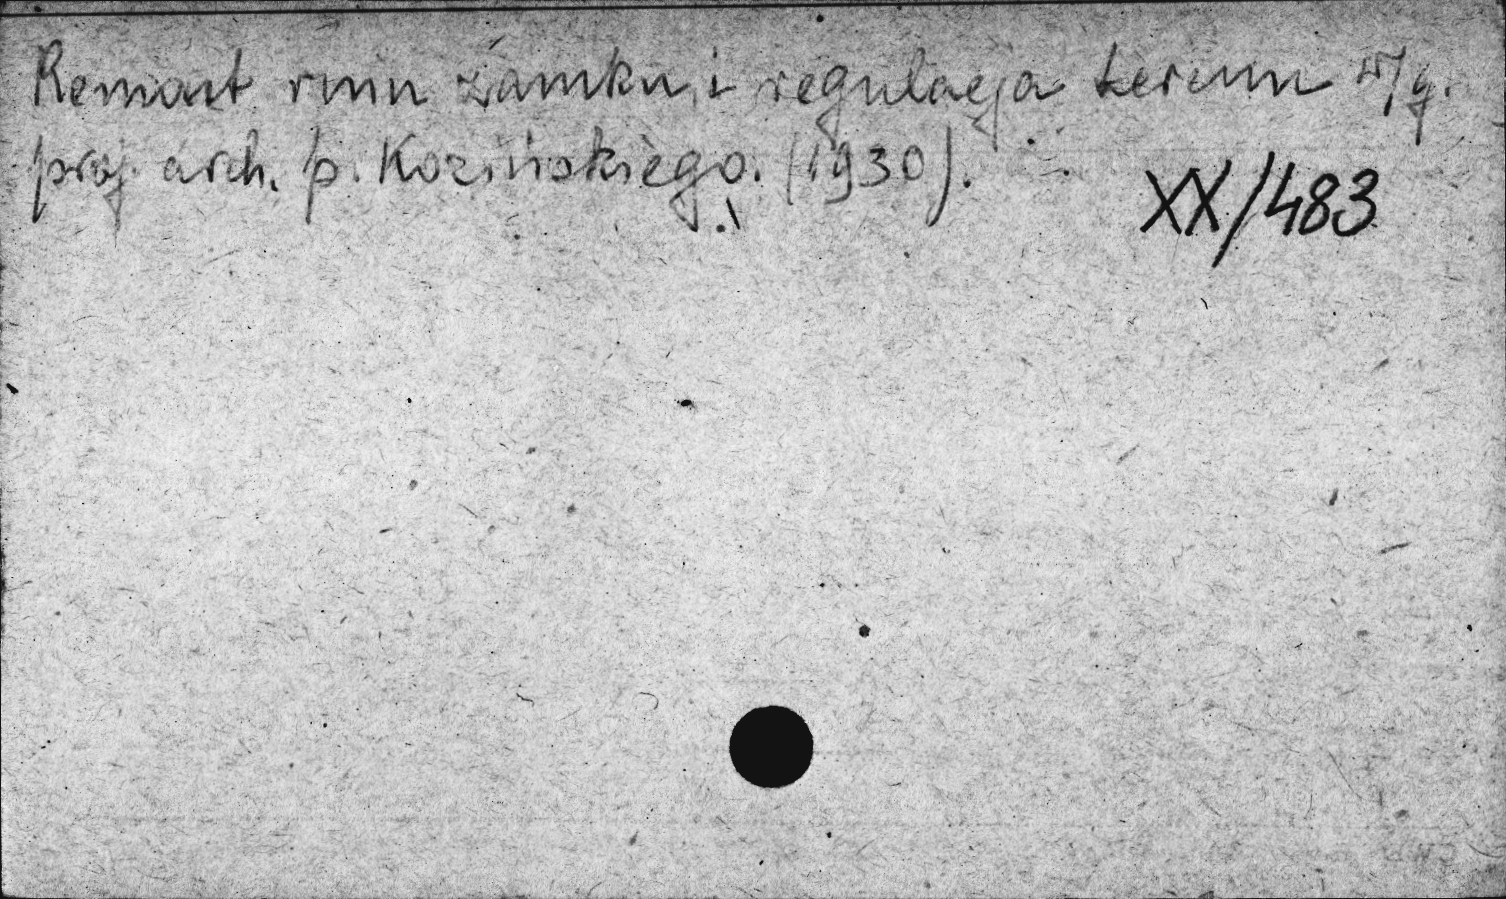 Remont ruin zamku i regulacja terenu w/g.
proj. arch. p. Kozińskiego. (1930).
XX/483